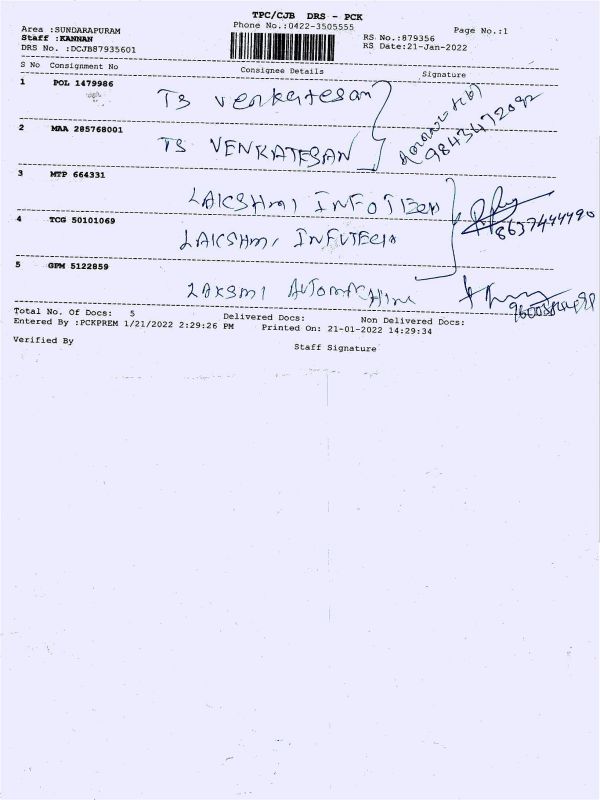 TPC/CJB DRS - PCK
Phone No.:0422-3505555
Page No.:1
Area :SUNDARAPURAM
Staff :KANNAN
DRS No. :DCJB87935601
RS No.:879356
RS Date:21-Jan-2022
S No Consignment No Consignee Details Signature
1 POL 1479986 TS venkatesan
2 MAA 285768001 TS VENKATESAN
9843472092
3 MTP 664331 LAKSHMI INFOTECH
4 TCG 50101069 LAKSHMI INFOTECH
8637444490
5 GPM 5122859 LAKSMI AUTOMACHINE
Total No. Of Docs: 5 Delivered Docs: Non Delivered Docs:
Entered By :PCKPREM 1/21/2022 2:29:26 PM Printed On: 21-01-2022 14:29:34
Verified By
Staff Signature